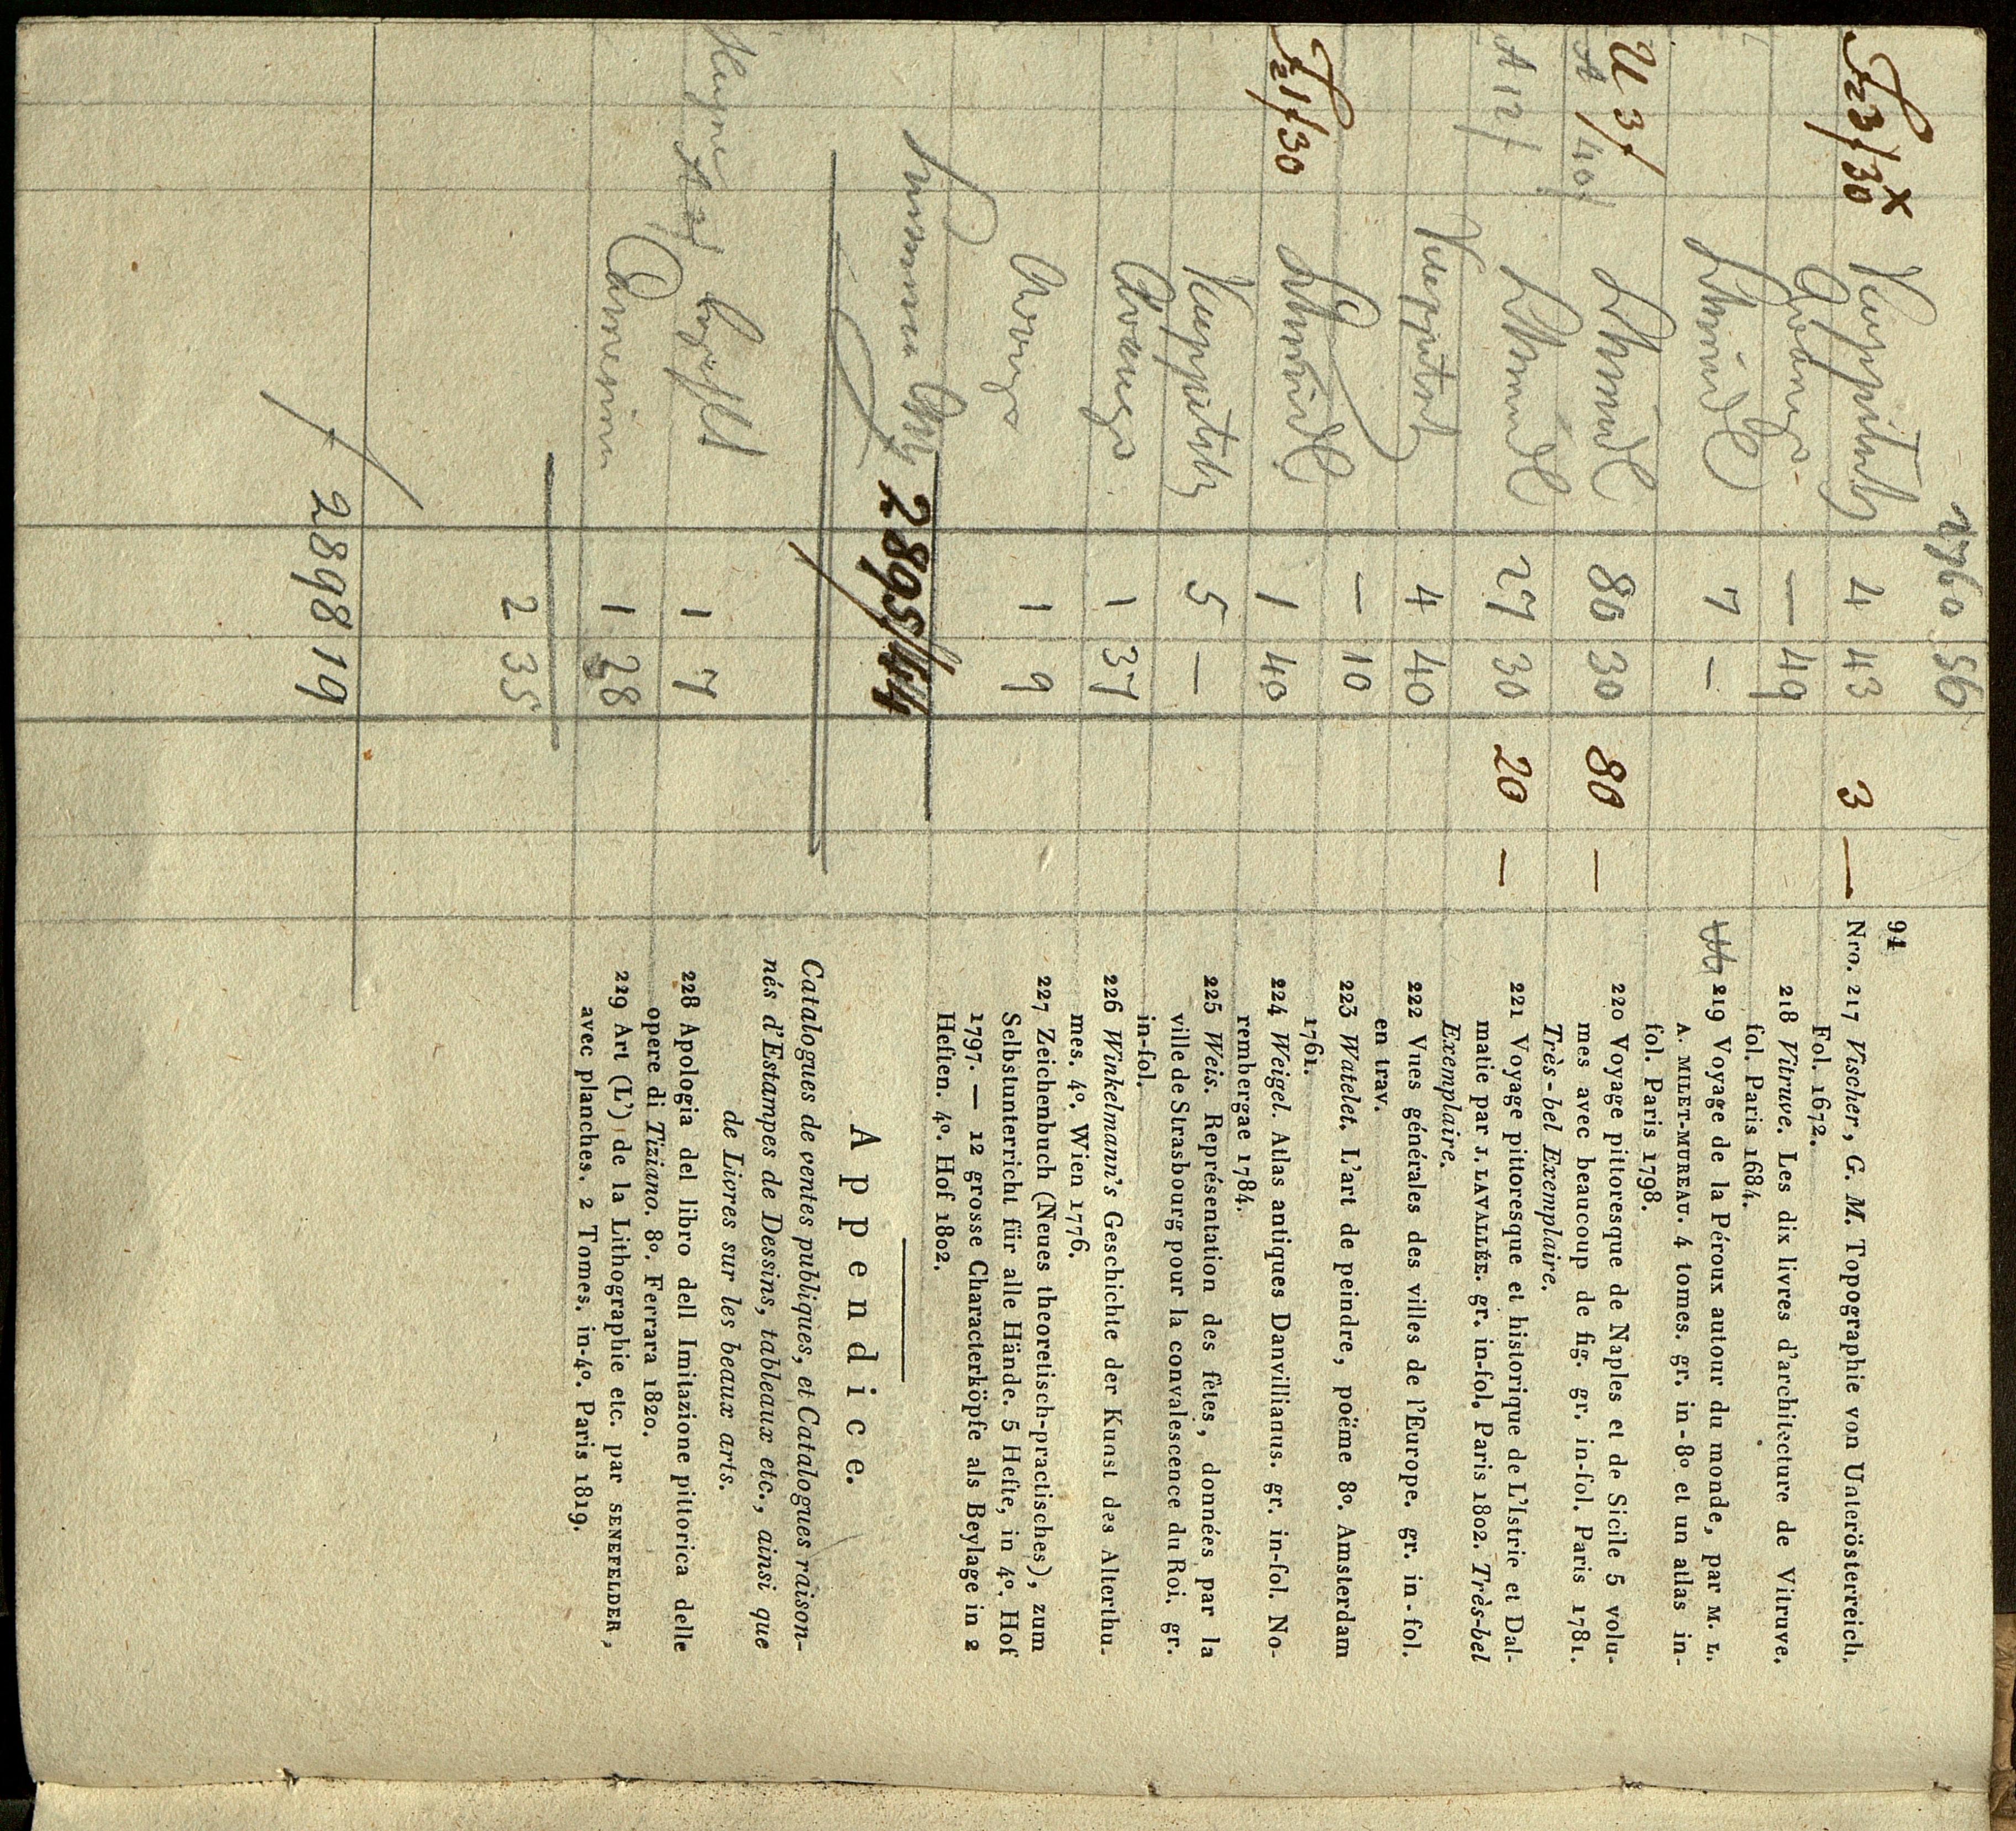 94
2760 56
F23/30 x Kuppitsch 4 43 3 — Nro. 217 Vischer, G. M. Topographie von Unterösterreich.
Fol. 1672.
— 49 218 Vitruve. Les dix livres d'architecture de Vitruve.
fol. Paris 1684.
Schmidl 7 — 219 Voyage de la Péroux autour du monde, par M. L.
A. MILET-MUREAU. 4 tomes. gr. in-8º et un atlas in-
fol. Paris 1798.
U 3/ A/40/ Schmidl 80 30 80 — 220 Voyage pittoresque de Naples et de Sicile 5 volu-
mes avec beaucoup de fig. gr. in-fol. Paris 1781.
Très-bel Exemplaire.
A 12/ Schmidl 27 30 20 — 221 Voyage pittoresque et historique de L'Istrie et Dal-
matie par J. LAVALLÉE. gr. in-fol. Paris 1802. Très-bel
Exemplaire.
Kuppitsch 4 40 222 Vues générales des villes de l'Europe. gr. in-fol.
en trav.
— 10 223 Watelet. L'art de peindre, poëme 8º. Amsterdam
1761.
F21/30 Schmidl 1 40 224 Weigel. Atlas antiques Danvillianus. gr. in-fol. No-
rembergae 1784.
Kuppitsch 5 — 225 Weis. Représentation des fêtes, données par la
ville de Strasbourg pour la convalescence du Roi. gr.
in-fol.
1 37 226 Winkelmann's Geschichte der Kunst des Alterthu-
mes. 4º. Wien 1776.
1 9 227 Zeichenbuch (Neues theoretisch-practisches), zum
Selbstunterricht für alle Hände. 5 Hefte, in 4º. Hof
1797. — 12 grosse Characterköpfe als Beylage in 2
Heften. 4º. Hof 1802.
Summa 2895/44
Appendice.
Catalogues de ventes publiques, et Catalogues raison-
nés d'Estampes de Dessins, tableaux etc., ainsi que
de Livres sur les beaux arts.
1 7 228 Apologia del libro dell Imitazione pittorica delle
opere di Tiziano. 8º. Ferrara 1820.
Artaria 1 28 229 Art (L') de la Lithographie etc. par SENEFELDER,
avec planches. 2 Tomes. in-4º. Paris 1819.
2 35
f 2898 19